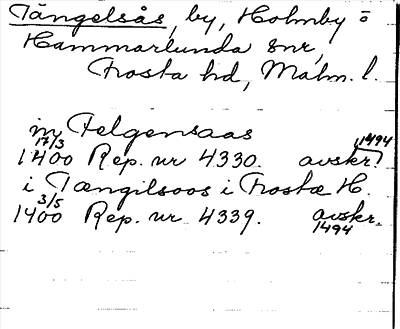 Tängelsås, by, Holmby o
Hammarlunda snr,
Frosta hd, Malm. l.
in Felgensaas
17/3 1494
1400 Rep. nr 4330. avskr.
i Tængilsoos i Frostæ H.
3/5
1400 Rep. nr 4339. avskr.
1494